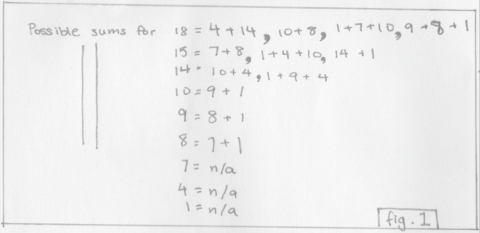 Possible sums for 18 = 4+14, 10+8, 1+7+10, 9+8+1
15 = 7+8, 1+4+10, 14+1
14 = 10+4, 1+9+4
10 = 9+1
9 = 8+1
8 = 7+1
7 = n/a
4 = n/a
1 = n/a
fig. 1